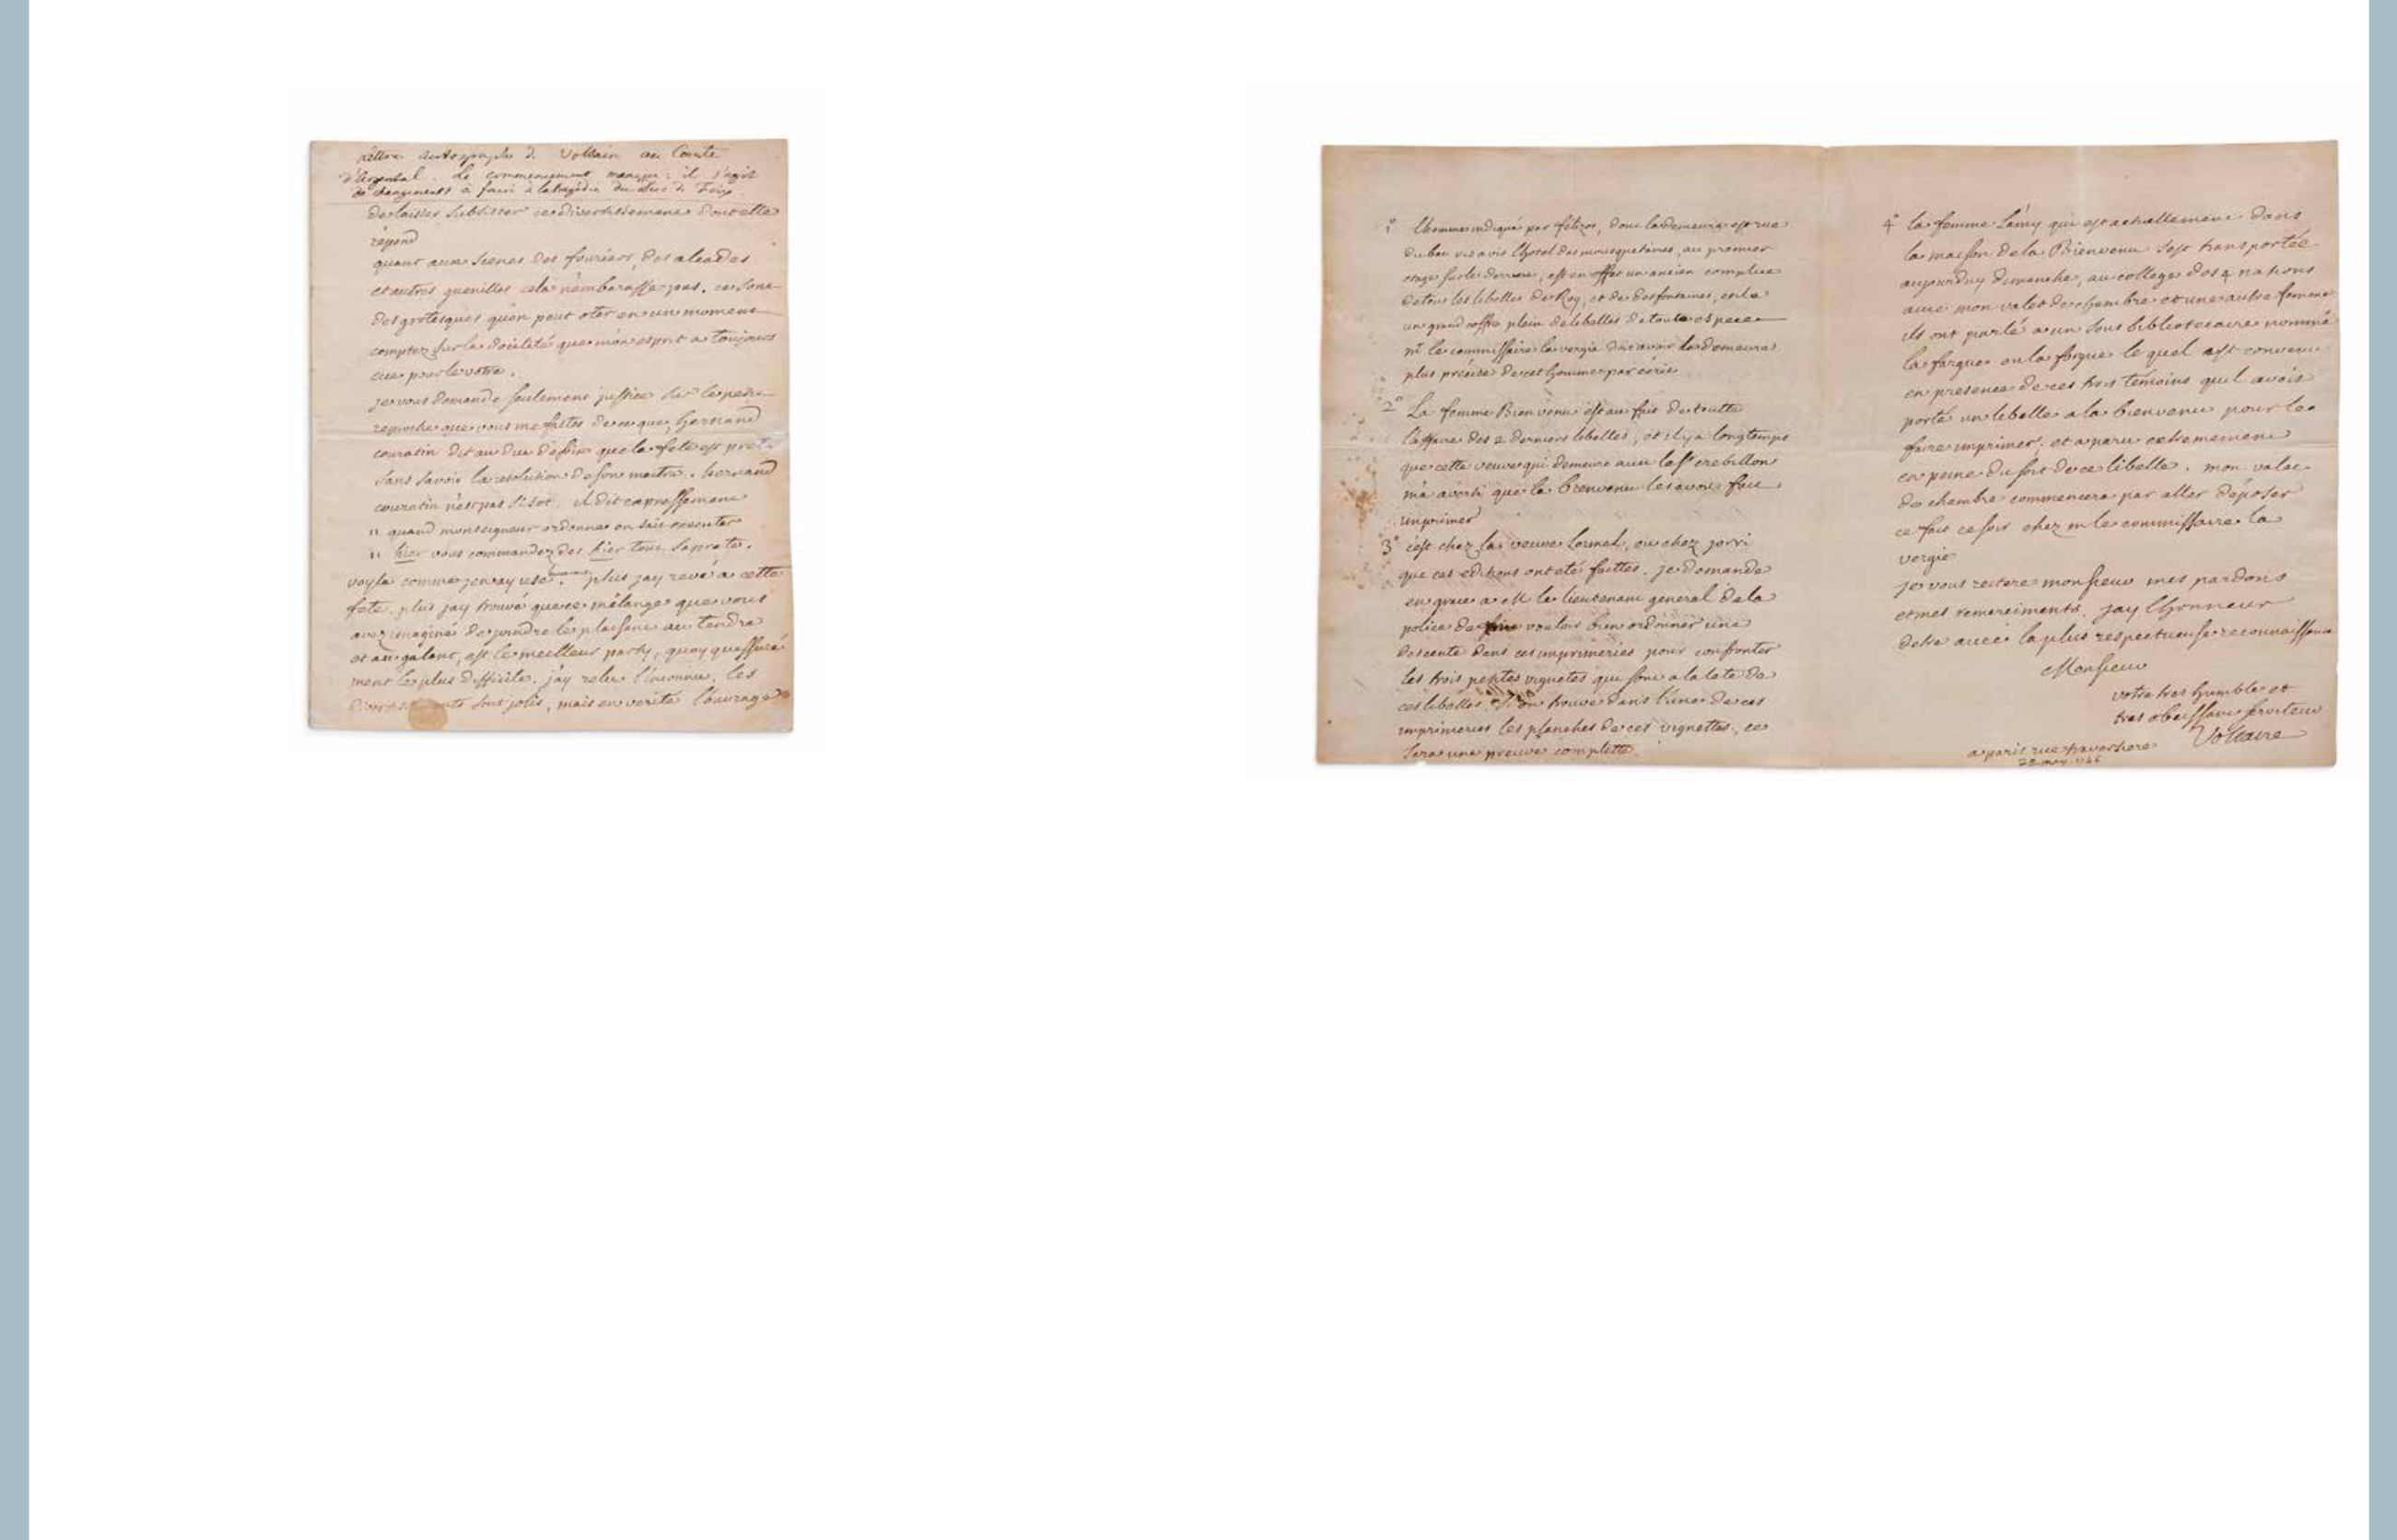 Lettre autographe de Voltaire au Comte
d'Argental. Le commencement manque: il s'agit
de changements à faire à la tragédie du Duc de Foix.
de laisser subsister ce divertissement dont elle
répond
quant aux scenes des fouriers, des alcades
et autres guenilles cela n'embarasse pas. ce sont
des grotesques quon peut oter en un moment
comptez sur la docilité que mon esprit a toujours
eue pour le votre.
je vous demande seulement justice sur le petit
reproche que vous me faites de ce que hernand
couratin dit au duc de foix que la fete est prete
sans savoir la resolution de son maitre. hernand
couratin n'est pas si sot. il dit expressement
" quand monseigneur ordonne on sait executer
" hier vous commandez des hier tout saprete.
voyla comme jen ay usé. plus jay revé a cette
fete, plus jay trouvé que ce mélange que vous
avez imaginé de joindre le plaisant au tendre
et au galant, est le meilleur party, quoy quassuré
ment le plus difficile. j'ay relu l'inconnu, les
sont jolis, mais en verité l'ouvrage
1° l'homme indiqué par félizot, dont la demeure est rue
du bac vis a vis l'hotel des mousquetaires, au premier
etage sur le derriere, est en effet un ancien complice
de tous les libelles de Roy, et de desfontaines, et il a
un grand coffre plein de libelles de toute espece
mr le commissaire la vergée doit avoir la demeure
plus précise de cet homme par écrit
2° La femme Bienvenu est au fait de toutte
l'affaire des 2 derniers libelles, et il y a longtemps
que cette veuve qui demeure avec le sr crebillon
m'a averti que la bienvenu les avoit fait
imprimer
3° c'est chez la veuve Lormel, ou chez jorri
que ces editions ont eté faittes. je demande
en grace a M le lieutenant general de la
police de vouloir bien ordonner une
descente dans ces imprimeries pour confronter
les trois petites vignetes qui sont a la tete de
ces libelles. Si on trouve dans l'une de ces
imprimeries les planches de ces vignettes, ce
sera une preuve complette.
4° la femme Lamy qui est actuellement dans
la maison de la Bienvenu sest transportée
aujourduy dimanche, au college des 4 nations
avec mon valet de chambre et une autre femme
ils ont parlé a un sous bibliotecaire nommé
la fargue ou la forgue le quel est convenu
en presence de ces trois témoins quil avoit
porté un libelle a la bienvenu pour le
faire imprimer; et a paru extremement
en peine du sort de ce libelle. mon valet
de chambre commencera par aller déposer
ce fait ce soir chez mr le commissaire la
vergée
je vous reitere monsieur mes pardons
et mes remerciments. jay lhonneur
detre avec la plus respectueuse reconnaissance
Monsieur
votre tres humble et
tres obeissant serviteur
Voltaire
a paris rue traversiere
22 may 1746